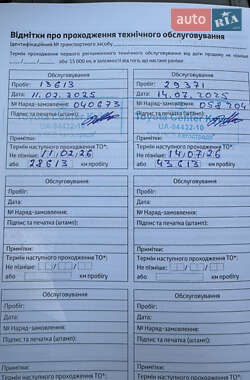 AUTO RIA
Відмітки про проходження технічного обслуговування
Ідентифікаційний № транспортного засобу
Термін проходження першого регламентного технічного обслуговування від дати продажу не пізніше
або 15 000 км, в залежності від того, що настане раніше
Обслуговування
Пробіг: 13613
Дата: 11.02.2025
№ Наряд-замовлення: 040673
Підпис та печатка (штамп):
UA-04432-10
Примітки:
Термін наступного проходження ТО*:
Не пізніше: 11/02/26
або 28613 км пробігу
Обслуговування
Пробіг: 29371
Дата: 14.07.2025
№ Наряд-замовлення: 058204
Підпис та печатка (штамп):
Toyota Center
UA-04432-10
Примітки:
Термін наступного проходження ТО*:
Не пізніше: 14/07/26
або 43613 км пробігу
Обслуговування
Пробіг:
Дата:
№ Наряд-замовлення:
Підпис та печатка (штамп):
Примітки:
Термін наступного проходження ТО*:
Не пізніше: / /
або км пробігу
Обслуговування
Пробіг:
Дата:
№ Наряд-замовлення:
Підпис та печатка (штамп):
Примітки:
Термін наступного проходження ТО*:
Не пізніше: / /
або км пробігу
Обслуговування
Пробіг:
Дата:
№ Наряд-замовлення:
Підпис та печатка (штамп):
Примітки:
Термін наступного проходження ТО*:
Не пізніше: / /
або км пробігу
Обслуговування
Пробіг:
Дата:
№ Наряд-замовлення:
Підпис та печатка (штамп):
Примітки:
Термін наступного проходження ТО*:
Не пізніше: / /
або км пробігу